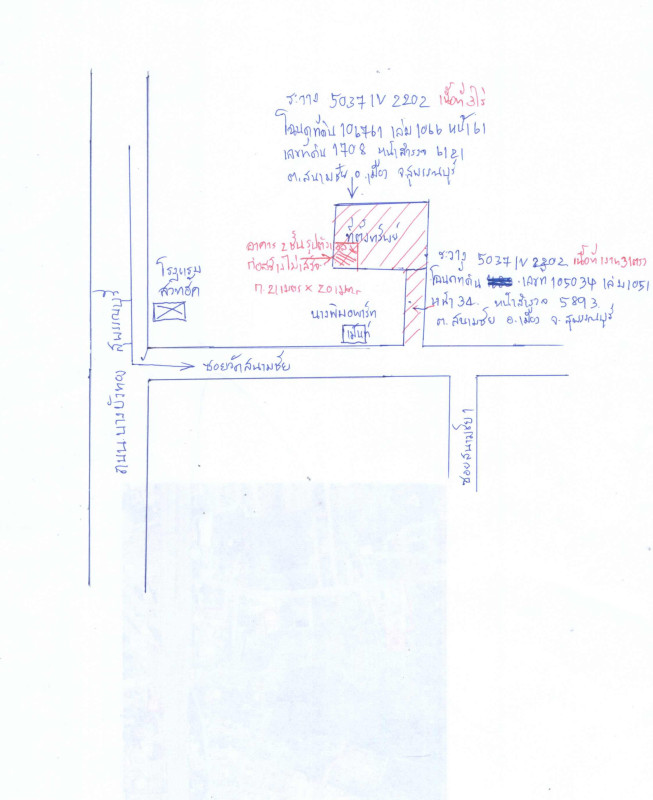 ระวาง 5037 IV 2202 เนื้อที่ 3 ไร่
โฉนดที่ดิน 106761 เล่ม 1066 หน้า 61
เลขที่ดิน 1708 หน้าสำรวจ 6121
ต.สนามชัย อ.เมือง จ.สุพรรณบุรี
ที่ตั้งทรัพย์
อาคาร 2 ชั้น รูปตัว
ก่อสร้างไม่เสร็จ
ก. 21 เมตร x 20 เมตร
ระวาง 5037 IV 2202 เนื้อที่ 1 งาน 31 ตรว
โฉนดที่ดิน เลขที่ 105034 เล่ม 1051
หน้า 34 หน้าสำรวจ 5893
ต.สนามชัย อ.เมือง จ.สุพรรณบุรี
โรงแรม
สวีทฮัท
นางพิมอพาร์ท
เม้นท์
ซอยวัดสนามชัย
ถนน บางบัวทอง สุพรรณบุรี
ซอยสนามชัย 1